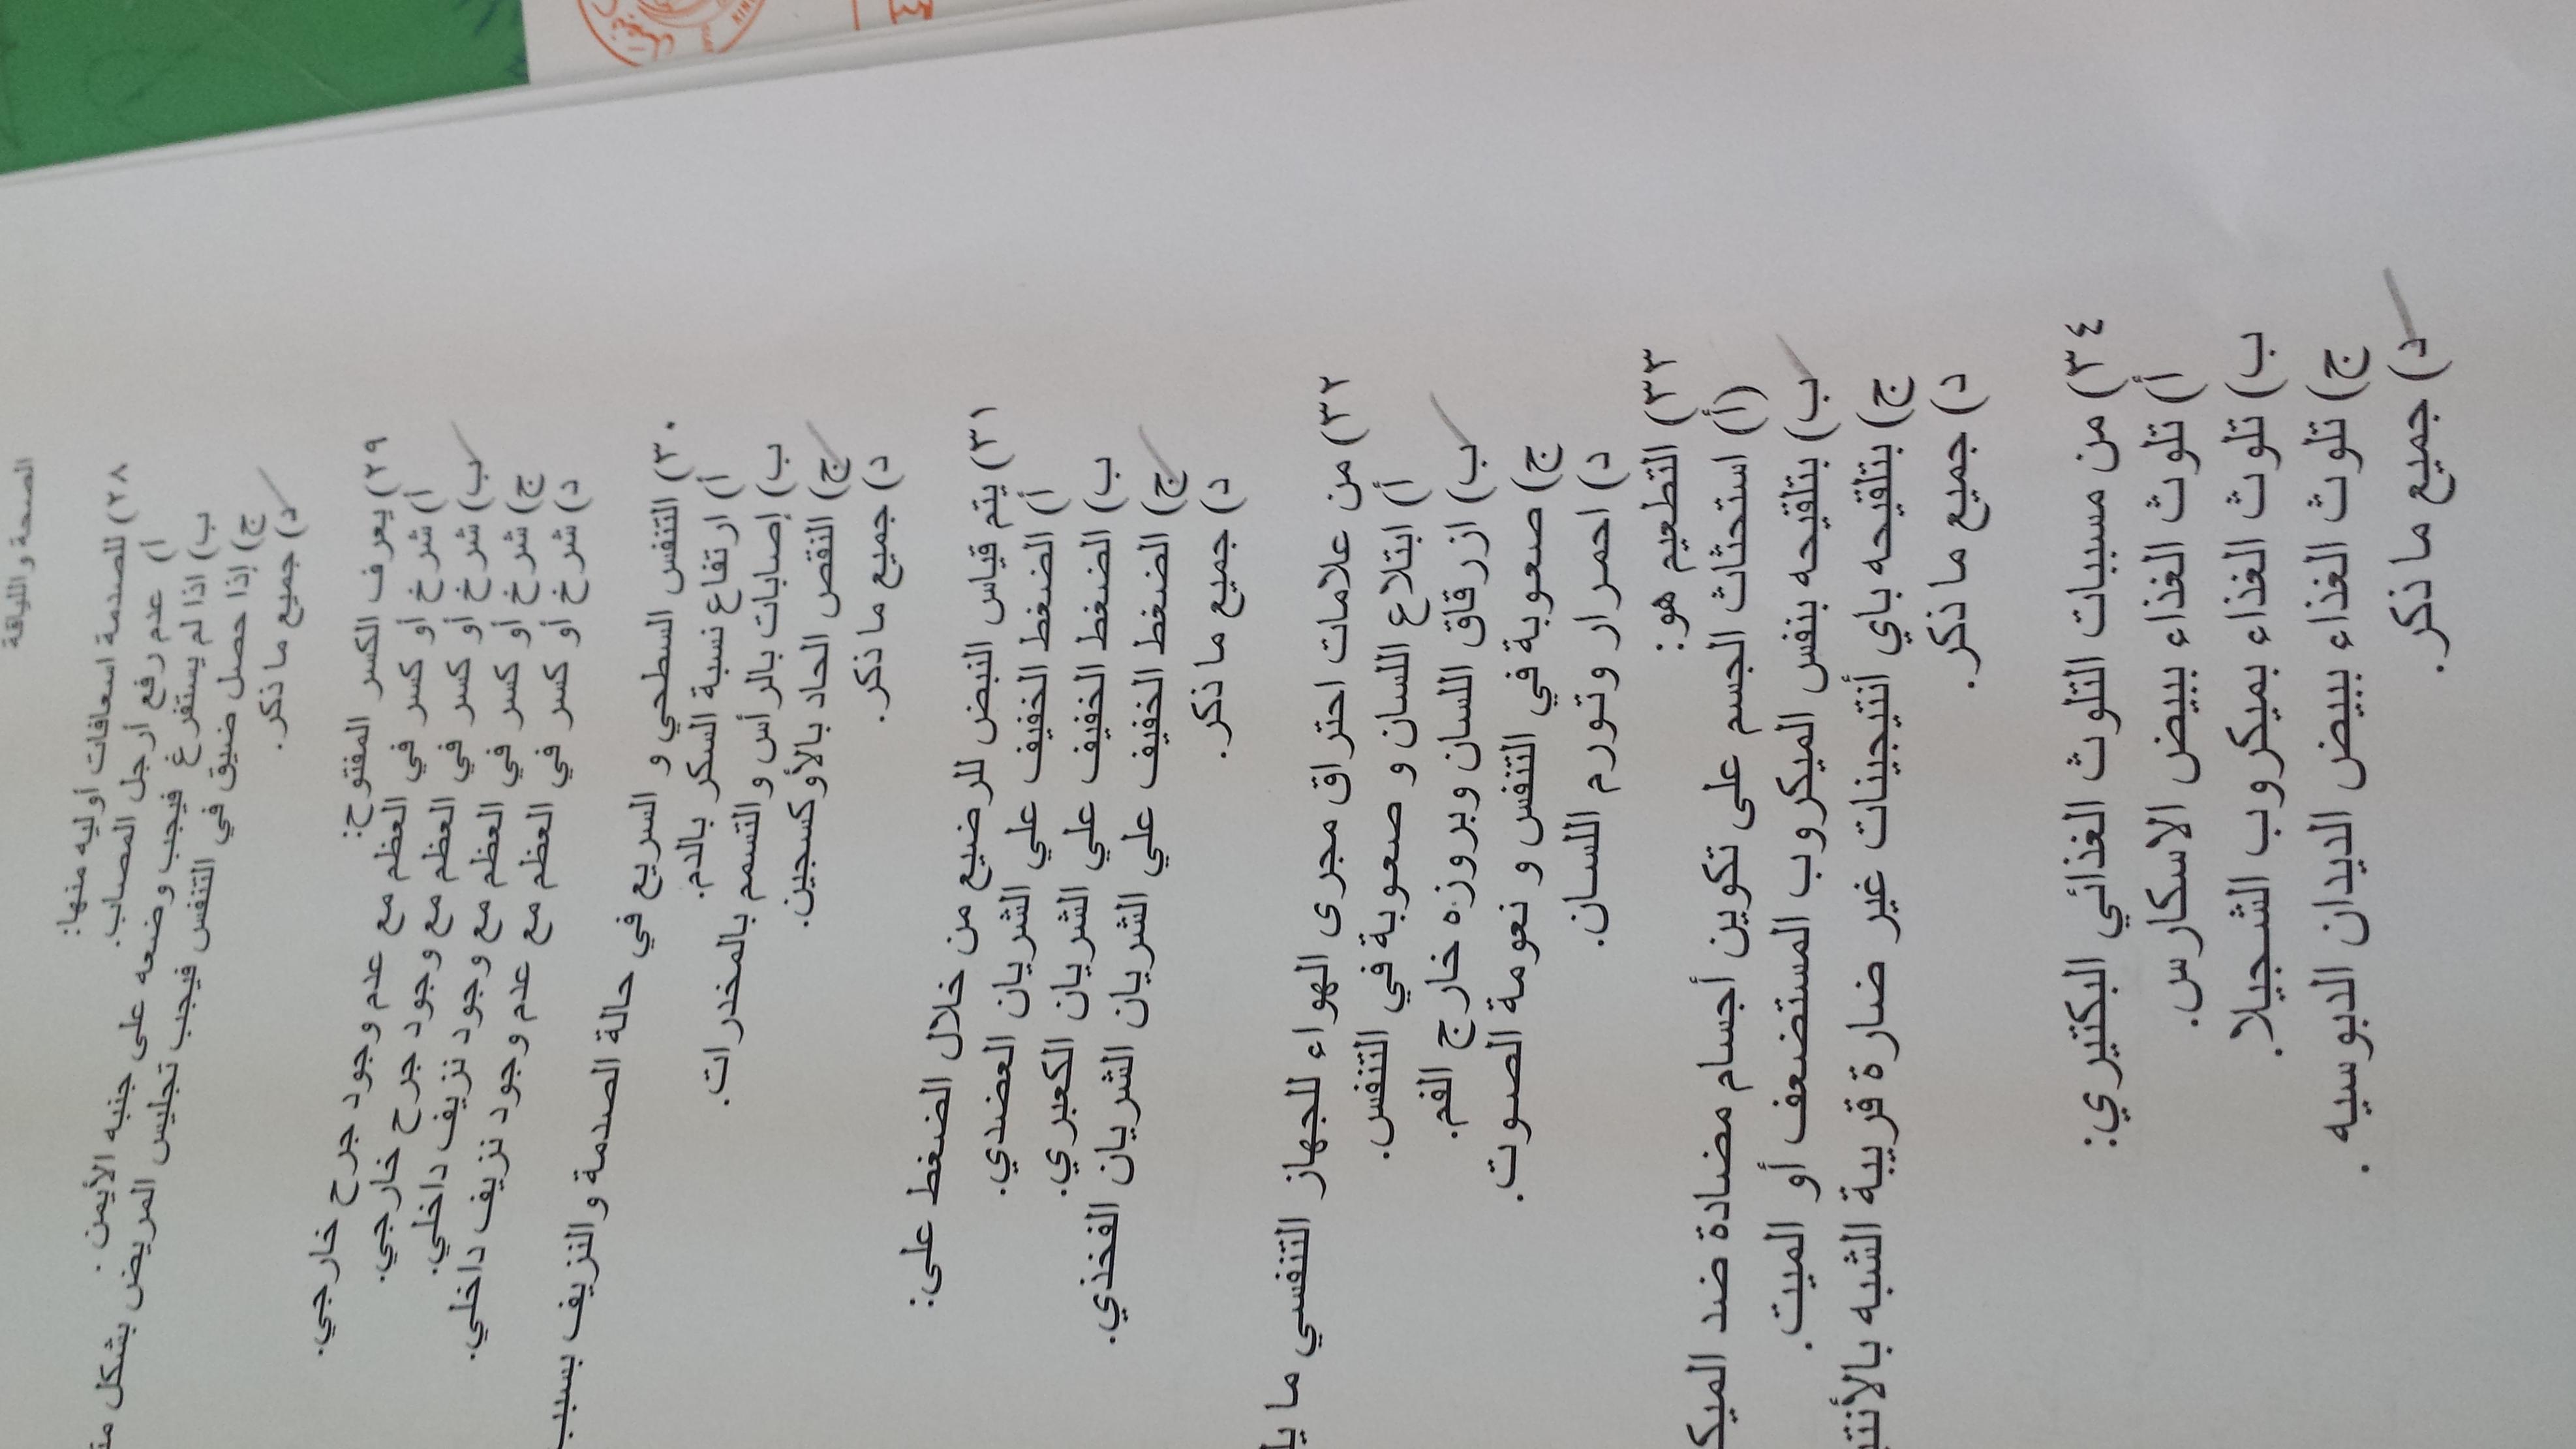 الصحة واللياقة
٢٨) للصدمة اسعافات أوليه منها:
أ) عدم رفع أرجل المصاب.
ب) اذا لم يستفرغ فيجب وضعه على جنبه الأيمن .
ج) إذا حصل ضيق في التنفس فيجب تجليس المريض بشكل
د) جميع ما ذكر .
٢٩) يعرف الكسر المفتوح:
أ) شرخ أو كسر في العظم مع عدم وجود جرح خارجي.
ب) شرخ أو كسر في العظم مع وجود جرح خارجي.
ج) شرخ أو كسر في العظم مع وجود نزيف داخلي.
د) شرخ أو كسر في العظم مع عدم وجود نزيف داخلي.
٣٠) التنفس السطحي و السريع في حالة الصدمة و النزيف بسبب
أ) ارتفاع نسبة السكر بالدم.
ب) إصابات بالرأس و التسمم بالمخدرات.
ج) النقص الحاد بالأوكسجين.
د) جميع ما ذكر .
٣١) يتم قياس النبض للرضيع من خلال الضغط على:
أ) الضغط الخفيف علي الشريان العضدي.
ب) الضغط الخفيف علي الشريان الكعبري.
ج) الضغط الخفيف علي الشريان الشريان الفخذي.
د) جميع ما ذكر .
٣٢) من علامات احتراق مجرى الهواء للجهاز التنفسي ما
أ) ابتلاع اللسان و صعوبة في التنفس.
ب) ازرقاق اللسان وبروزه خارج الفم.
ج) صعوبة في التنفس و نعومة الصوت.
د) احمرار وتورم اللسان.
٣٣) التطعيم هو:
(أ) استحثاث الجسم على تكوين أجسام مضادة ضد
ب) بتلقيحه بنفس الميكروب المستضعف أو الميت.
ج) بتلقيحه باي أنتيجينات غير ضارة قريبة الشبه
د) جميع ما ذكر .
٣٤) من مسببات التلوث الغذائي البكتيري:
أ) تلوث الغذاء ببيض الاسكارس.
ب) تلوث الغذاء بميكروب الشجيلا.
ج) تلوث الغذاء ببيض الديدان الدبوسيه .
د) جميع ما ذكر .